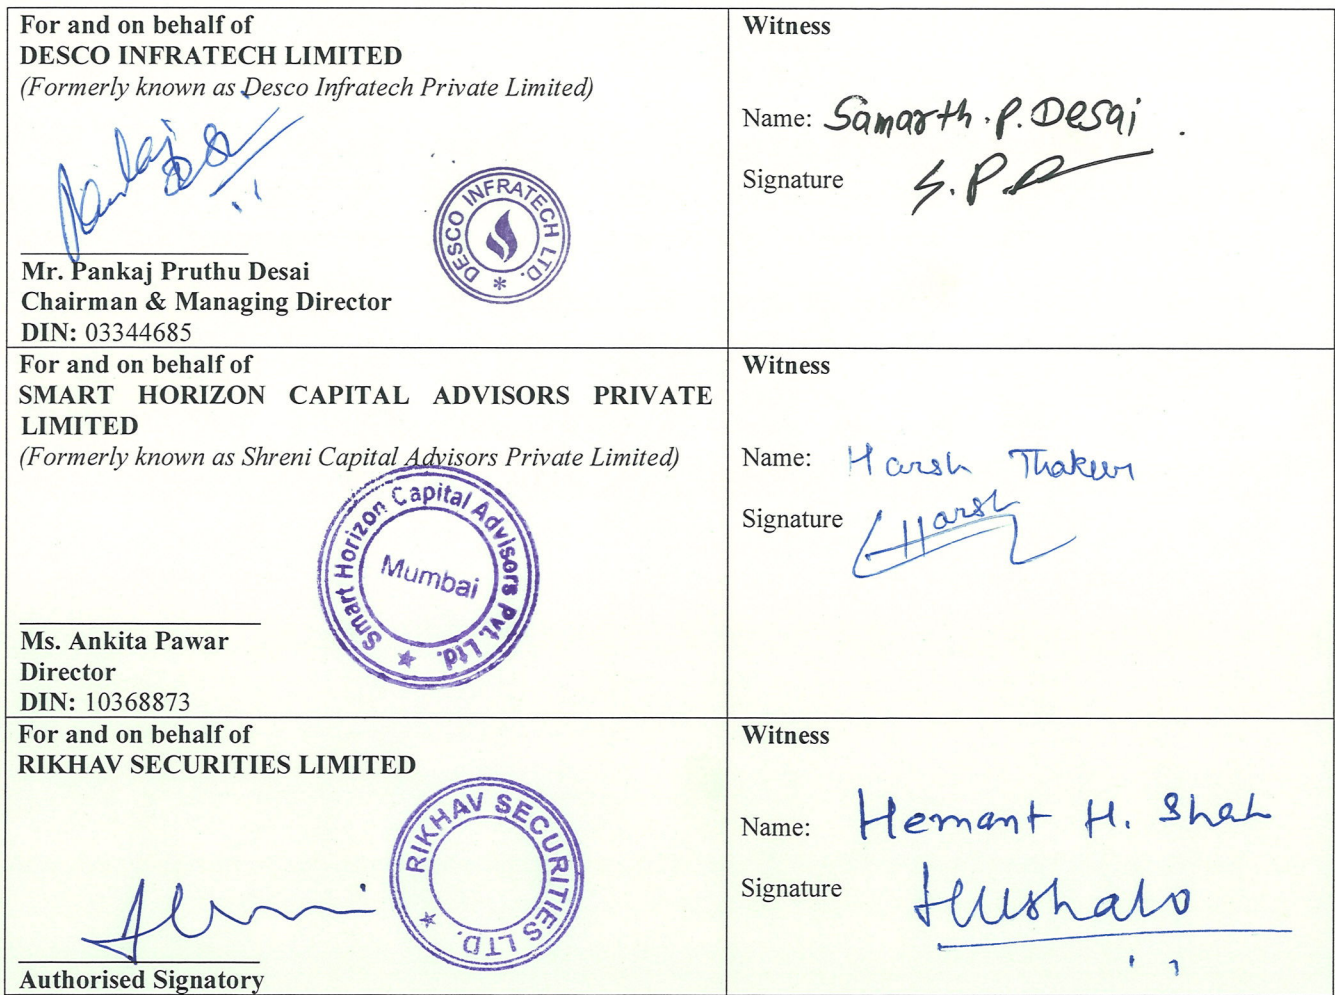 For and on behalf of
DESCO INFRATECH LIMITED
(Formerly known as Desco Infratech Private Limited)
Pankaj
DESCO INFRATECH LTD. *
Mr. Pankaj Pruthu Desai
Chairman & Managing Director
DIN: 03344685
Witness
Name: Samarth. P. Desai
Signature S.P.D
For and on behalf of
SMART HORIZON CAPITAL ADVISORS PRIVATE
LIMITED
(Formerly known as Shreni Capital Advisors Private Limited)
Smart Horizon Capital Advisors Pvt. Ltd.
Mumbai
Ms. Ankita Pawar
Director
DIN: 10368873
Witness
Name: Harsh Thakur
Signature Harsh
For and on behalf of
RIKHAV SECURITIES LIMITED
RIKHAV SECURITIES LTD.
Authorised Signatory
Witness
Name: Hemant H. Shah
Signature